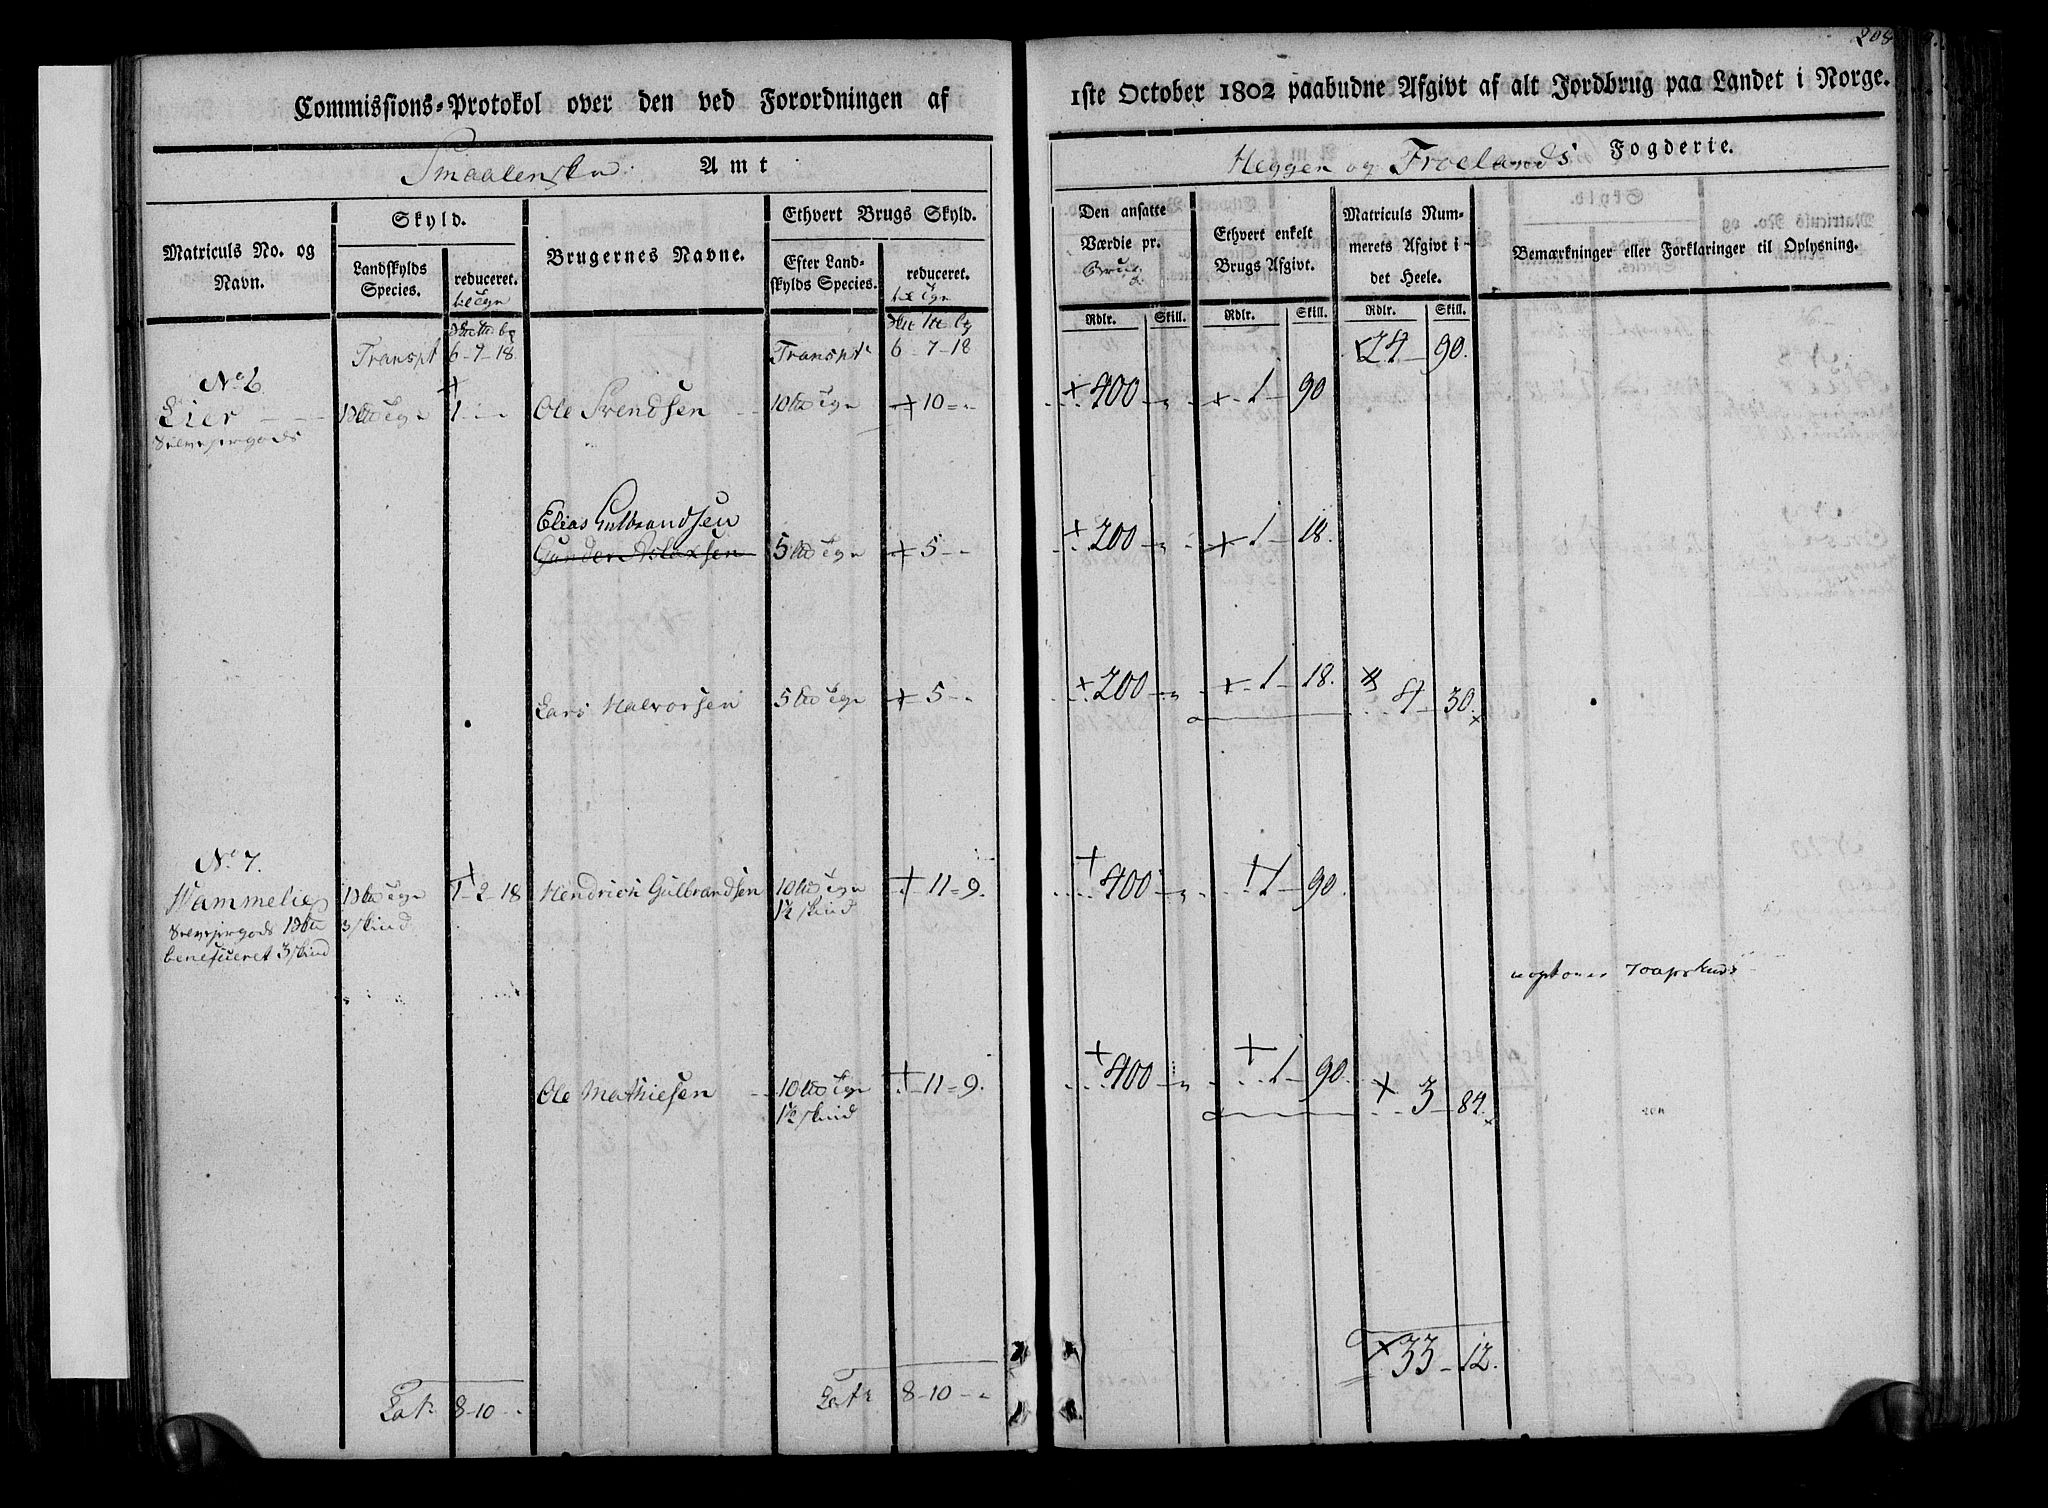 208
Commissions-Protokol over den ved Forordningen af
1ste October 1802 paabudne Afgivt af alt Jordbrug paa Landet i Norge.
Smaalenske Amt
Heggen og Froelands Fogderie.
Matriculs No. og Navn.
Skyld.
Landskylds Species.
reduceret.
Brugernes Navne.
Ethvert Brugs Skyld.
Efter Landskylds Species.
reduceret.
Den ansatte Værdie pr.
Ethvert enkelt Brugs Afgivt.
Matriculs Nummerets Afgivt i det Heele.
Bemærkninger eller Forklaringer til Oplysning.
Rdlr. Skill. Rdlr. Skill. Rdlr. Skill.
Transpt 6-7-18 Transpt 6-7-18 24-90.
No 6
Eier 1 Ole Svendsen 10 +10 +400 +1-90
Elias Gulbrandsen
Gunder Aslaksen 5 +5 +200 +1-18.
Lars Halvorsen 5 +5 +200 +1-18. 4-30.
No 7.
Hammelie 1-2-18 Hendrich Gulbrandsen 10 +11=9. +400 +1-90.
3 skind 1½ skind
benefıceret 3 skind
Ole Mathiesen 10 +11=9. +400 +1-90. +3-84.
1½ skind
33-12.
Lat. 8-10 Lat. 8-10